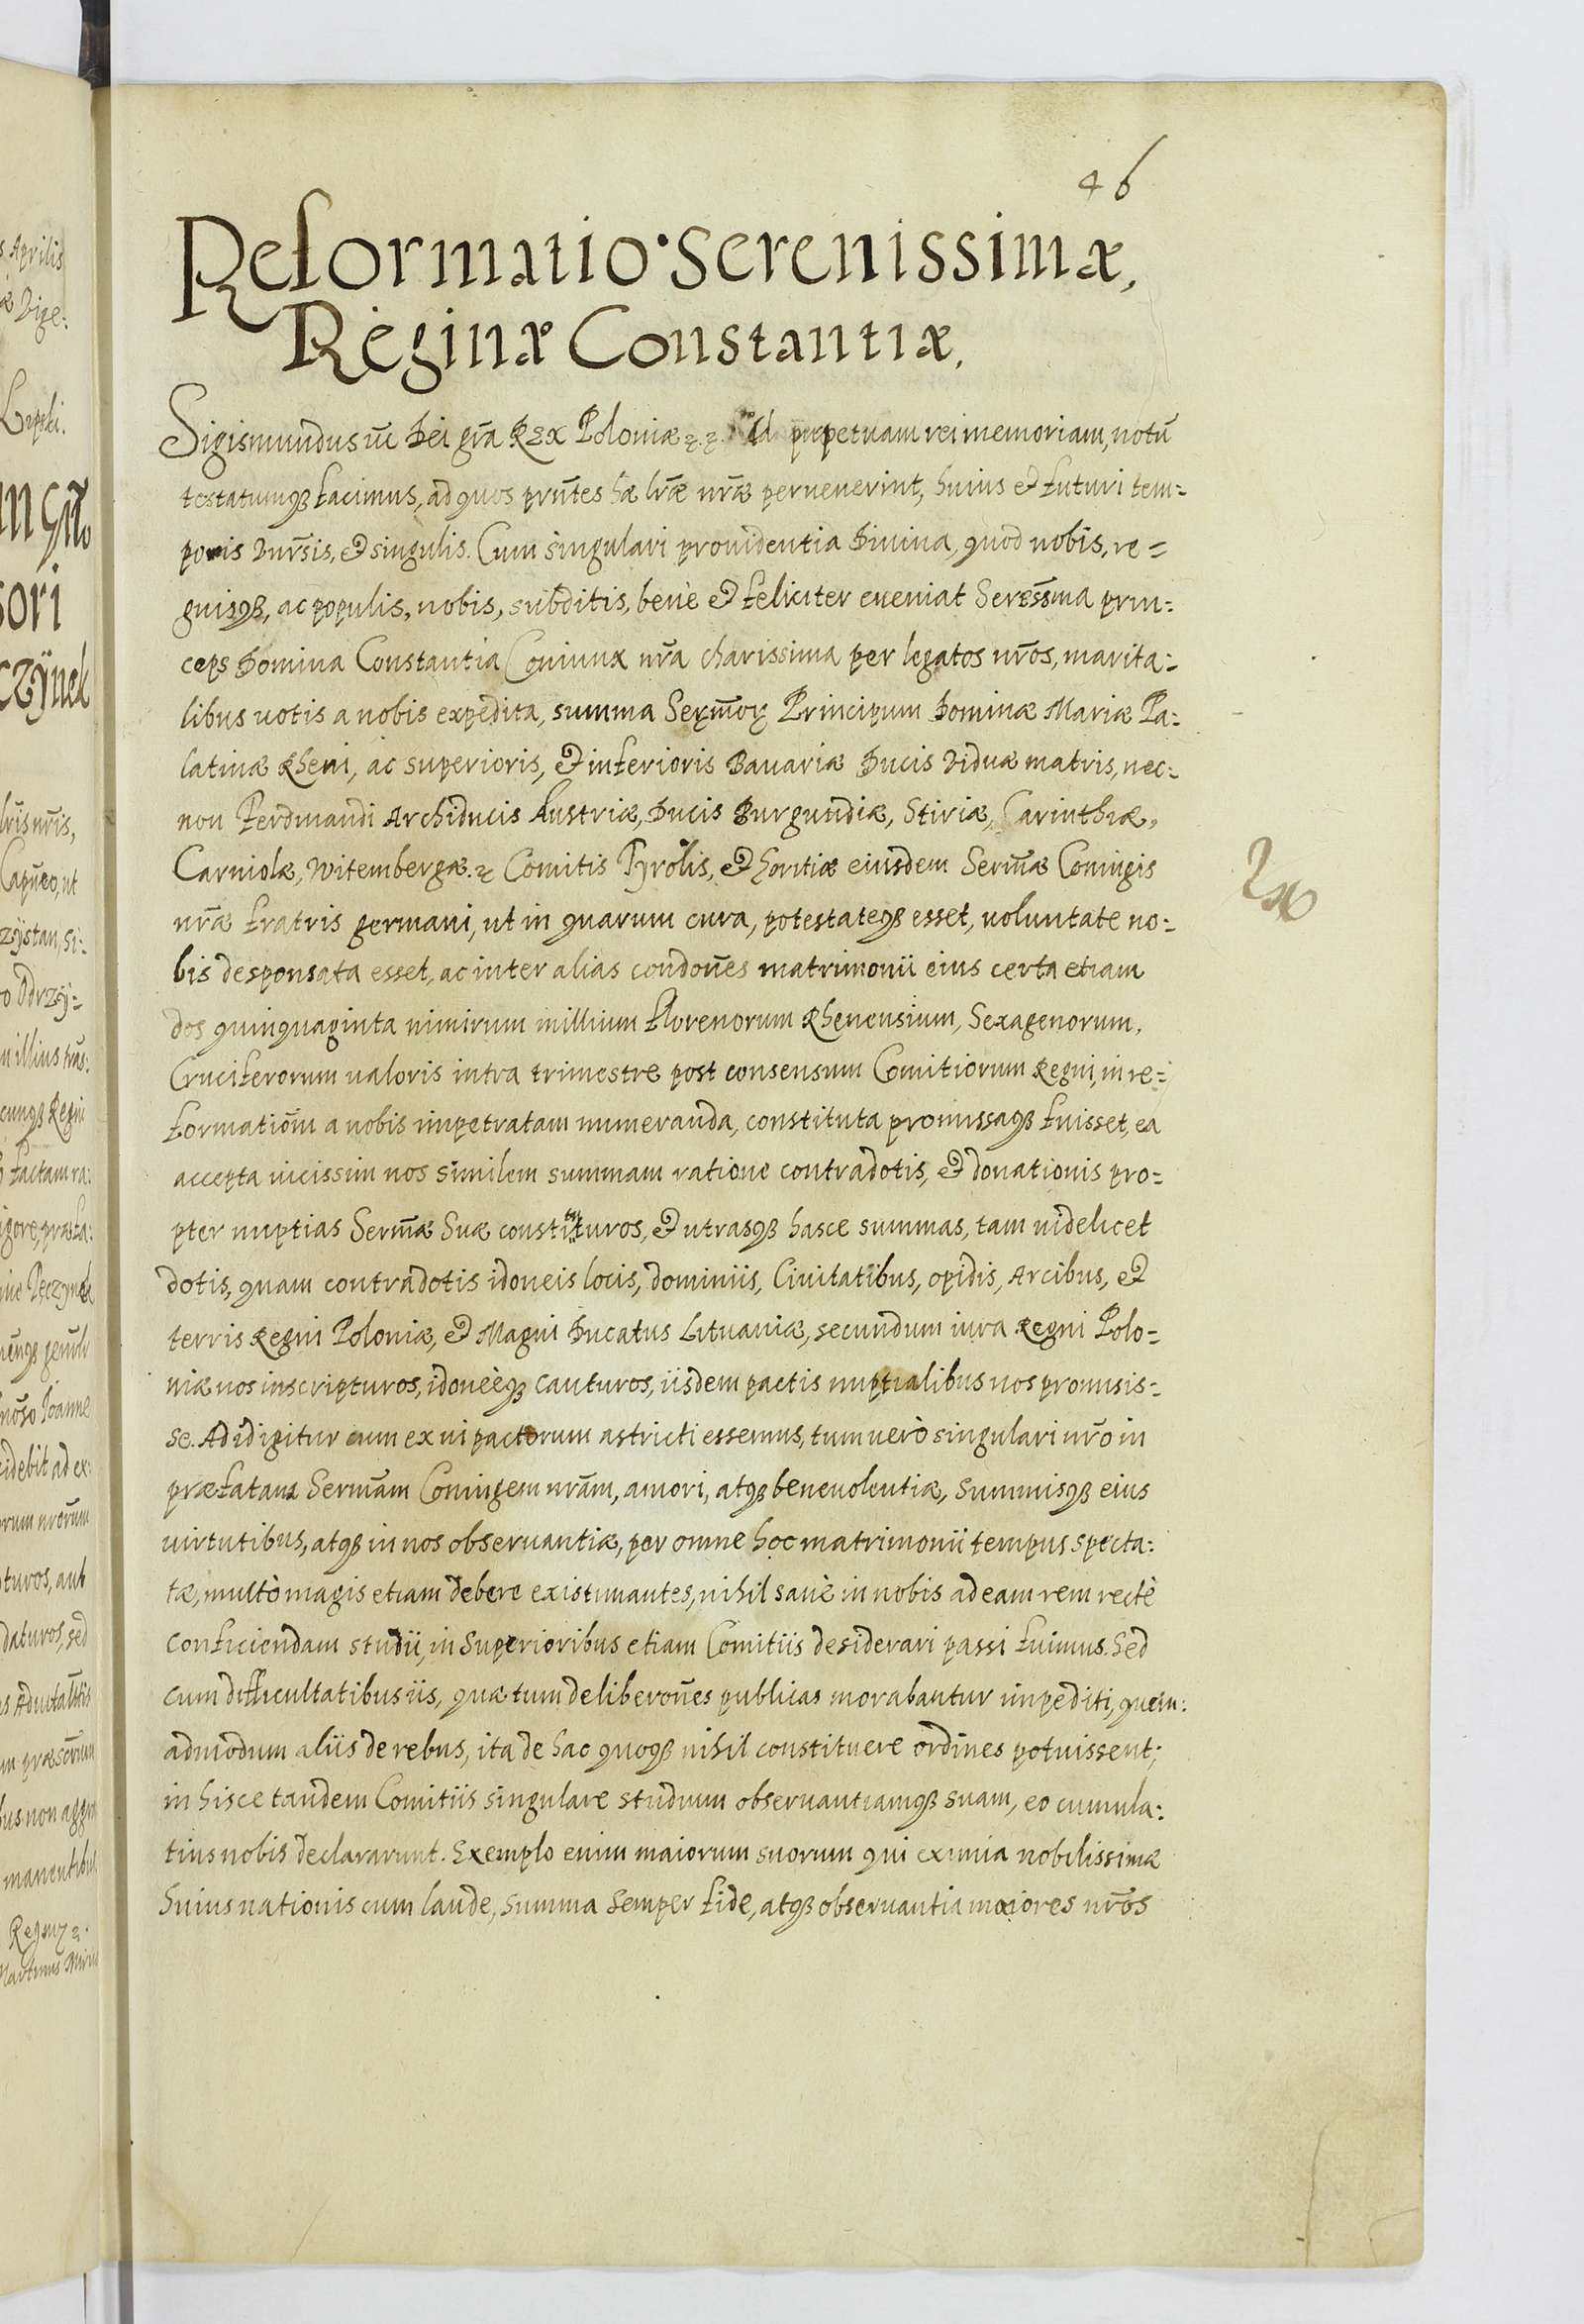 46
Reformatio Serenissimæ,
Reginæ Constantiæ.
Sigismundus iii Dei gr̃a Rex Poloniæ etc. etc. Ad perpetuam rei memoriam, notũ
testatumq́ facimus, ad quos prñtes hæ lr̃æ nr̃æ peruenerint, huius et futuri tem=
poris vnr̃sis, et singulis. Cum singulari prouidentia Diuina, quod nobis, re=
gnisq́, ac populis, nobis, subditis, benè et feliciter eueniat Sereñssma prin=
ceps Domina Constantia Coniunx nr̃a charissima per legatos nr̃os, marita=
libus uotis a nobis expedita, summa Serr̃mor̃ Principum Dominæ Mariæ Pa=
latinæ Rheni, ac superioris, et inferioris Bauariæ Ducis Viduæ matris, nec=
non Ferdinandi Archiducis Austriæ, Ducis Burgundiæ, Stiriæ, Carinthiæ,
Carniolæ, Witembergæ. etc Comitis Tyrolis, et Goritiæ eiusdem Serm̃æ Coniugis
nr̃æ fratris germani, ut in quarum cura, potestateq́ esset, uoluntate no=
bis desponsata esset, ac inter alias condoñes matrimonii eius certa etiam
dos quinquaginta nimirum millium florenorum Rhenensium, Sexagenorum,
Cruciferorum ualoris intra trimestre post consensum Comitiorum Regni, in re=
formatioñm a nobis impetratam numeranda, constituta promissaq́ fuisset, ea
accepta uicissim nos similem summam ratione contradotis, et donationis pro=
pter nuptias Serm̃æ Suæ constituturos, et utrasq́ hasce summas, tam uidelicet
dotis, quam contradotis idoneis locis, dominiis, Ciuitatibus, opidis, Arcibus, et
terris Regni Poloniæ, et Magni Ducatus Lituaniæ, secundum iura Regni Polo=
niæ nos inscripturos, idoneèq́ cauturos, iisdem pactis nuptialibus nos promisis=
se. Ad id igitur cum ex ui pactorum astricti essemus, tum uerò singulari nr̃o in
præfatam Serm̃am Coniugem nr̃am, amori, atq́ beneuolentiæ, summisq́ eius
uirtutibus, atq́ in nos obseruantiæ, per omne hoc matrimonii tempus specta=
tæ, multò magis etiam debere existimantes, nihil sanè in nobis ad eam rem rectè
conficiendam studii, in Superioribus etiam Comitiis desiderari passi fuimus. Sed
cum difficultatibus iis, quæ tum deliberoñes publicas morabantur impediti, quem=
admodum aliis de rebus, ita de hac quoq́ nihil constituere ordines potuissent;
in hisce tandem Comitiis singulare studium obseruantiamq́ suam, eo cumula=
tius nobis declararunt. Exemplo enim maiorum suorum qui eximia nobilissimæ
huius nationis cum laude, summa semper fide, atq́ obseruantia maiores nr̃os